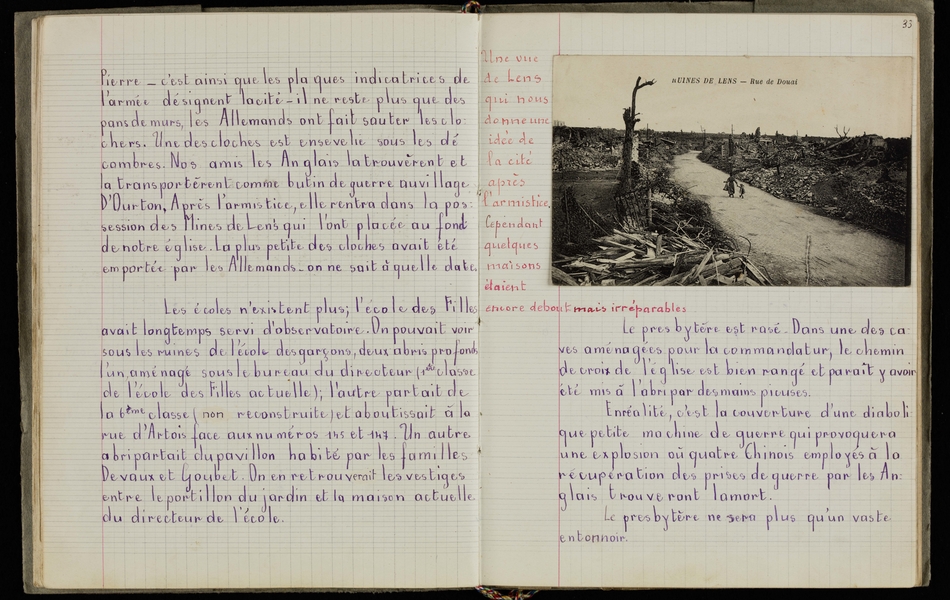 Pierre _ c'est ainsi que les plaques indicatrices de
l'armée désignent la cité - il ne reste plus que des
pans de murs, les Allemands ont fait sauter les clo-
chers. Une des cloches est ensevelie sous les dé
combres. Nos amis les Anglais la trouvèrent et
la transportèrent comme butin de guerre au village
D'Ourton, Après l'armistice, elle rentra dans la pos-
session des Mines de Lens qui l'ont placée au fond
de notre église. La plus petite des cloches avait été
emportée par les Allemands_ on ne sait à quelle date.
Les écoles n'existent plus; l'école des Filles
avait longtemps servi d'observatoire. On pouvait voir
sous les ruines de l'école des garçons, deux abris profonds
l'un, aménagé sous le bureau du directeur (1ère classe
de l'école des Filles actuelle); l'autre partait de
la 6ème classe (non reconstruite) et aboutissait à la
rue d'Artois face aux numéros 145 et 147. Un autre
abri partait du pavillon habité par les familles
Devaux et Goubet. On en retrouverait les vestiges
entre le portillon du jardin et la maison actuelle
du directeur de l'école.
33
Une vue
de Lens
qui nous
donne une
idée de
la cité
après
l'armistice.
Cependant
quelques
maisons
étaient
encore debout mais irréparables
RUINES DE LENS — Rue de Douai
Le presbytère est rasé. Dans une des ca-
ves aménagées pour la commandatur, le chemin
de croix de l'église est bien rangé et paraît y avoir
été mis à l'abri par des mains pieuses.
En réalité, c'est la couverture d'une diaboli
que petite machine de guerre qui provoquera
une explosion où quatre Chinois employés à la
récupération des prises de guerre par les An-
glais trouveront la mort.
Le presbytère ne sera plus qu'un vaste
entonnoir.